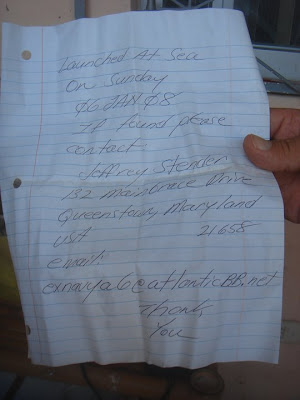 Launched At Sea
On Sunday
Ø6 JAN Ø8
If found please
contact
Jeffrey Stender
132 Mainbrace Drive
Queenstown, Maryland
USA 21658
email:
exnavya6@atlanticBB.net
Thank
You